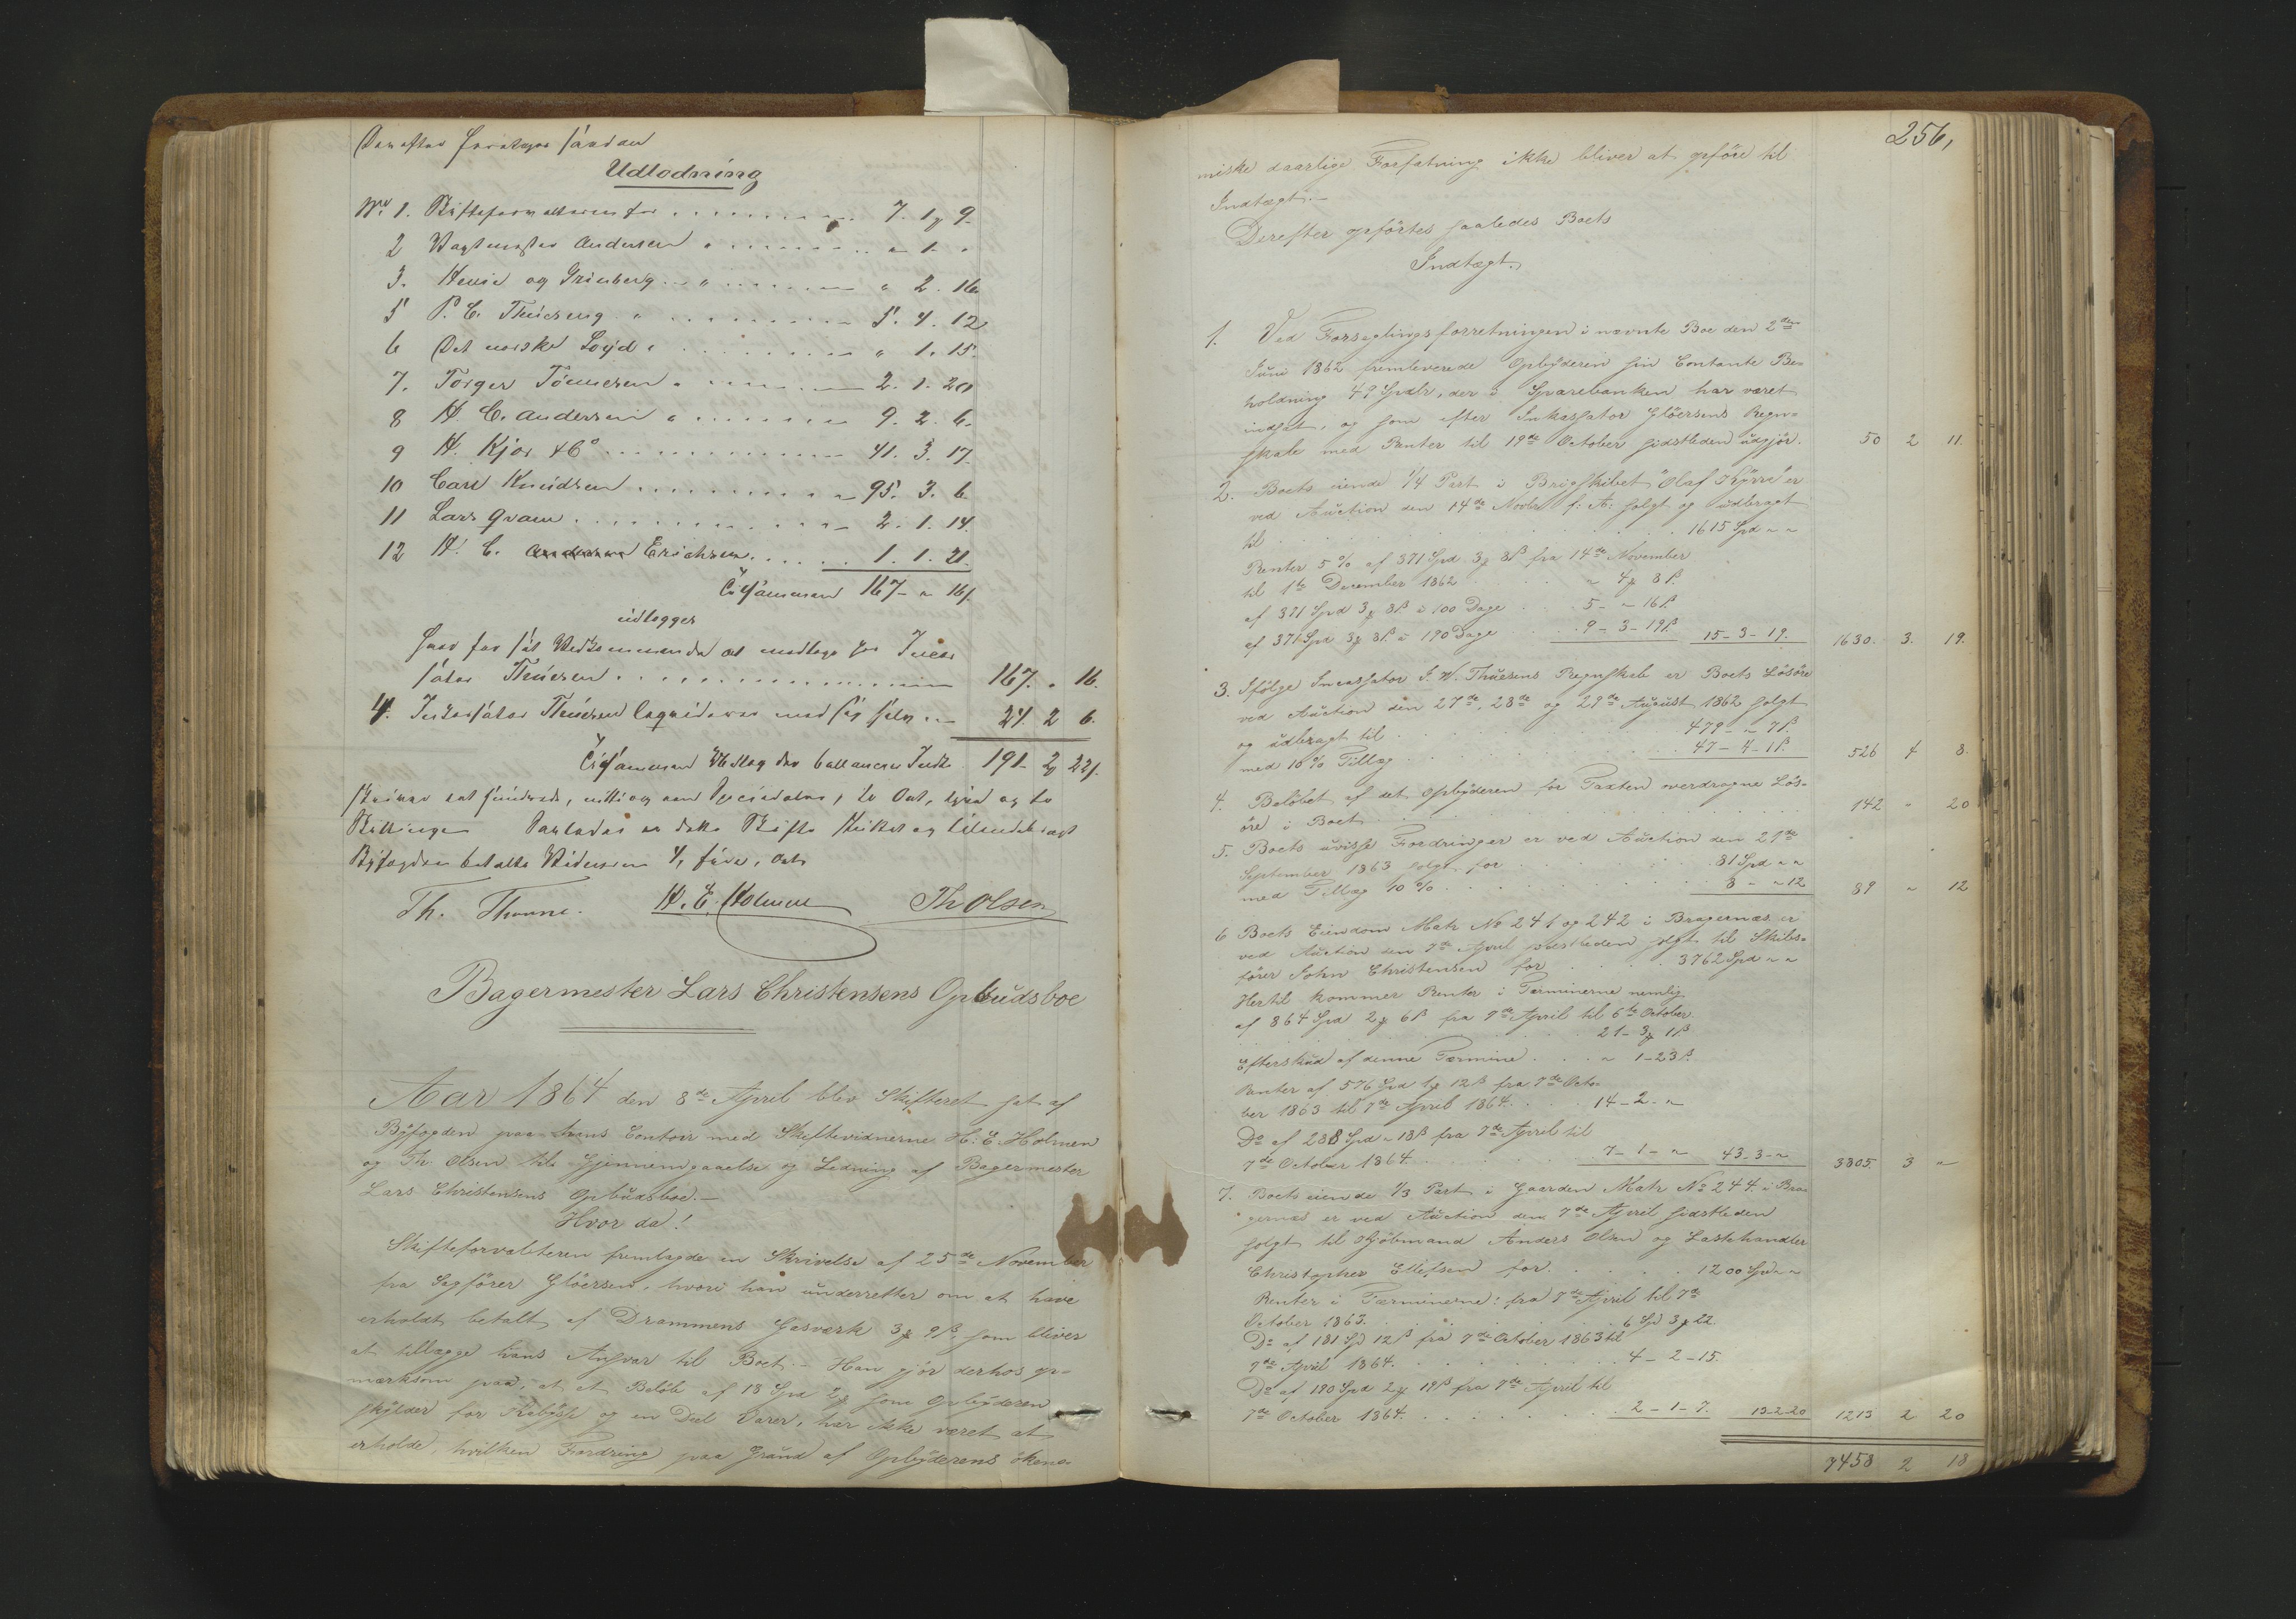 Derefter foretoges saadan
Udlodning
No 1. Skifteforvalteren for . . . 7. 1 9.
2 Vagtmester Andersen " . . . " 1. "
3. Heuie og Grünberg " . . . " 2. 16
5 P. C. Thuesung " . . . 5. 4. 12
6 Det norske Loyd " . . . " 1. 15.
7. Torger Tönnesen " . . . 2. 1. 20
8 H. C. Andersen " . . . 9. 2. 6.
9 H. Kjær & Co . . . 41. 3. 17.
10 Carl Knudsen . . . 95. 3. 6.
11 Lars Qvam . . . 2. 1. 14.
12 H. C. Andersen Erichsen . . . 1. 1. 21.
Tilsammen 167 - " 16 β.
udlægges
hvad for sit Vedkommende at modtage for Incas
sator Thuesen . . . 167. " 16.
4. Inkassator Thuesen liqviderer med sig selv . . 24. 2 6.
Tilsammen Udlæg der ballancerer Indt. 191 - 2 22 β.
skriver eet hundrede, nitti og een Speciedaler, to Ort, tyve og to
Skillinger Saaledes er dette Skifte sluttet og tilendebragt
Byfogden betalte Vidnerne 4, fire, Ort
Th. Thorne. H. E. Holmen Th Olsen
Bagermester Lars Christensens Opbudsboe
Aar 1864 den 8de April blev Skifteret sat af
Byfogden paa hans Contoir med Skiftevidnerne H. E. Holmen
og Th. Olsen til Gjennemgaaelse og Ledning af Bagermester
Lars Christensens Opbudsboe. —
Hvor da!
Skifteforvalteren fremlagde en Skrivelse af 25de November
fra Sagförer Glöersen, hvori han underretter om at have
erholdt betalt af Drammens Gasværk 3 9 β, som bliver
at tillægge hans Ansvar til Boet. — Han gjör derhos op-
mærksom paa, at et Belöb af 18 Spd 2 som Opbyderen
skylder for Kabysse og en Deel Varer, har ikke været at
erholde, hvilken Fordring paa Grund af Opbyderens ökono-
256,
miske daarlige Forfatning ikke bliver at opföre til
Indtægt. —
Derefter opförtes saaledes Boets
Indtægt.
1. Ved Forseglingsforretningen i nævnte Boe den 2den
Juni 1862 fremleverede Opbyderen sin Contante Be-
holdning 49 Spdlr, der i Sparebanken har været
indsat, og som efter Inkassator Glöersens Regn-
skab med Renter til 19de October sidstleden udgjör. 50 2 11.
2. Boets eiende 1/4 Part i Brigskibet "Olaf Kyrre" er
ved Auction den 14de Novbr f: A: solgt og udbragt
til . . . 1615 Spd " "
Renter 5 % af 371 Spd 3 8 β fra 14de November
til 1ste December 1862 . . . " 4 8 β.
af 371 Spd 3 8 β i 100 Dage . . . 5 - " 16 β.
af 371 Spd 3 8 β i 190 Dage . . . 9 - 3 - 19 β. 15 - 3 - 19. 1630. 3. 19.
3. Ifölge Incassator I. W. Thuesens Regnskab er Boets Lösöre
ved Auction den 27de, 28de og 29de August 1862 solgt
og udbragt til . . . 479 - " 7 β.
med 10 % Tillæg . . . 47 - 4 - 1 β. 526 4 8.
4. Belöbet af det Opbyderen for Taxten overdragne Lös-
öre i Boet . . . 142 " 20
5. Boets uvisse Fordringer er ved Auction den 21de
September 1863 solgt for . . . 81 Spd " "
med Tillæg 10 % . . . 8 - " 12 89 " 12
6 Boets Eiendom Matr No 241 og 242 i Bragernæs er
ved Auction den 7de April sidstleden solgt til Skibs-
förer John Christensen for . . . 3762 Spd " "
Hertil kommer Renter i Terminerne nemlig
af 864 Spd 2 6 β fra 7de April til 6te October
. . . 21 - 3 1 β
Efterskud af denne Termine . . . " 1 - 23 β.
Renter af 576 Spd 1 12 β fra 7de Octo-
ber 1863 til 7de April 1864. . . . 14 - 2 - "
Do af 288 Spd " 18 β fra 7de April til
7de October 1864. . . . 7 - 1 - " 43 - 3 - " 3805. 3 "
7. Boets eiende 1/3 Part i Gaarden Matr No 244. i Bra-
gernæs er ved Auction den 7de April sidstleden
solgt til Kjöbmand Anders Olsen og Lastehandler
Christopher Ellefsen for. . . . 1200 Spd " "
Renter i Terminerne: fra 7de April til 7de
October 1863. . . . 6 Spd 3 22.
Do af 181 Sp 12 β fra 7de October 1863 til
7de April 1864. . . . 4 - 2 - 15.
Do af 180 Spd 2 19 β fra 7de April til
7de October 1864. . . . 2 - 1 - 7. 13 - 2 - 20 1213 2 20
7458 2 18